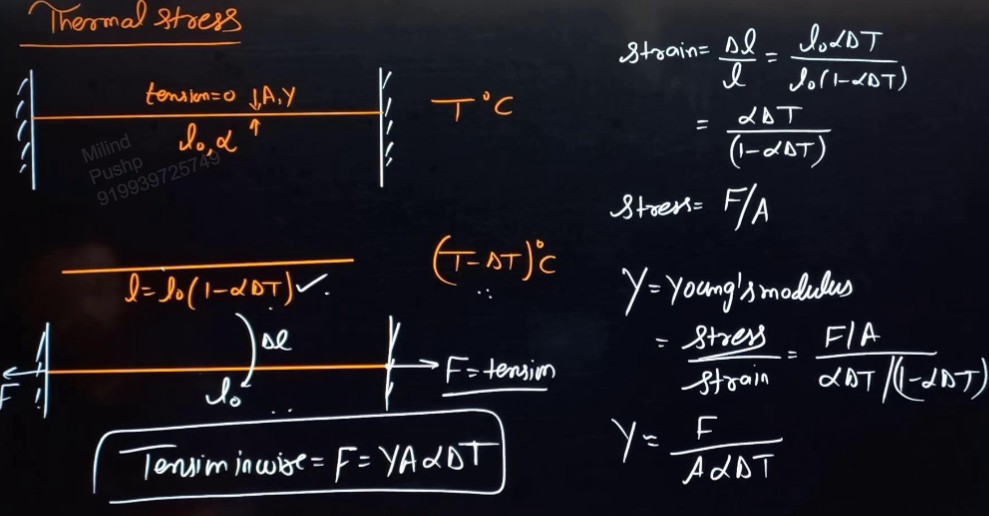 Thermal stress
tension=0 A,Y
l₀,α
T°C
Milind
Pushp
919939725749
(T-ΔT)°C
l=l₀(1-αΔT)✓.
Δl
l₀
F
F=tension
Tension in wire = F= YAαΔT
Strain= Δl/l = l₀αΔT/l₀(1-αΔT)
= αΔT/(1-αΔT)
Stress= F/A
Y=Young's modulus
= Stress/Strain = F/A/αΔT/(1-αΔT)
Y= F/AαΔT